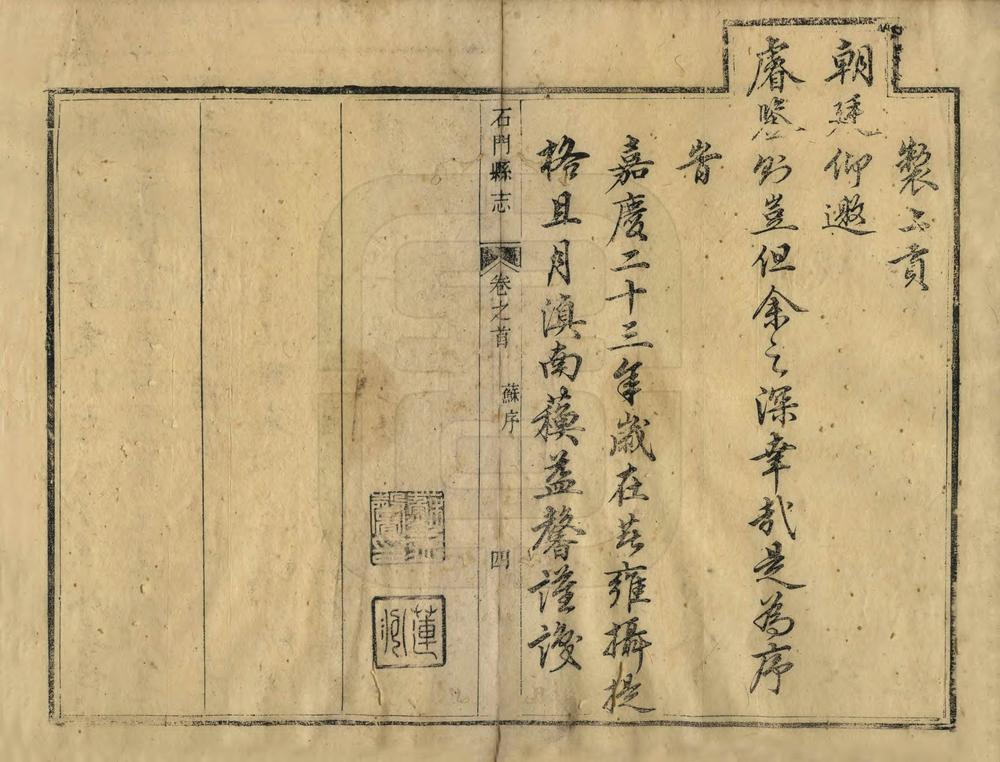 製上貢
朝廷仰邀
睿鑒則豈但余之深幸哉是為序
眥
嘉慶二十三年歲在著雍攝提
格且月滇南蘇益馨謹譔
石門縣志
卷之首
蘇序
四
蘇益馨印
蓮泓